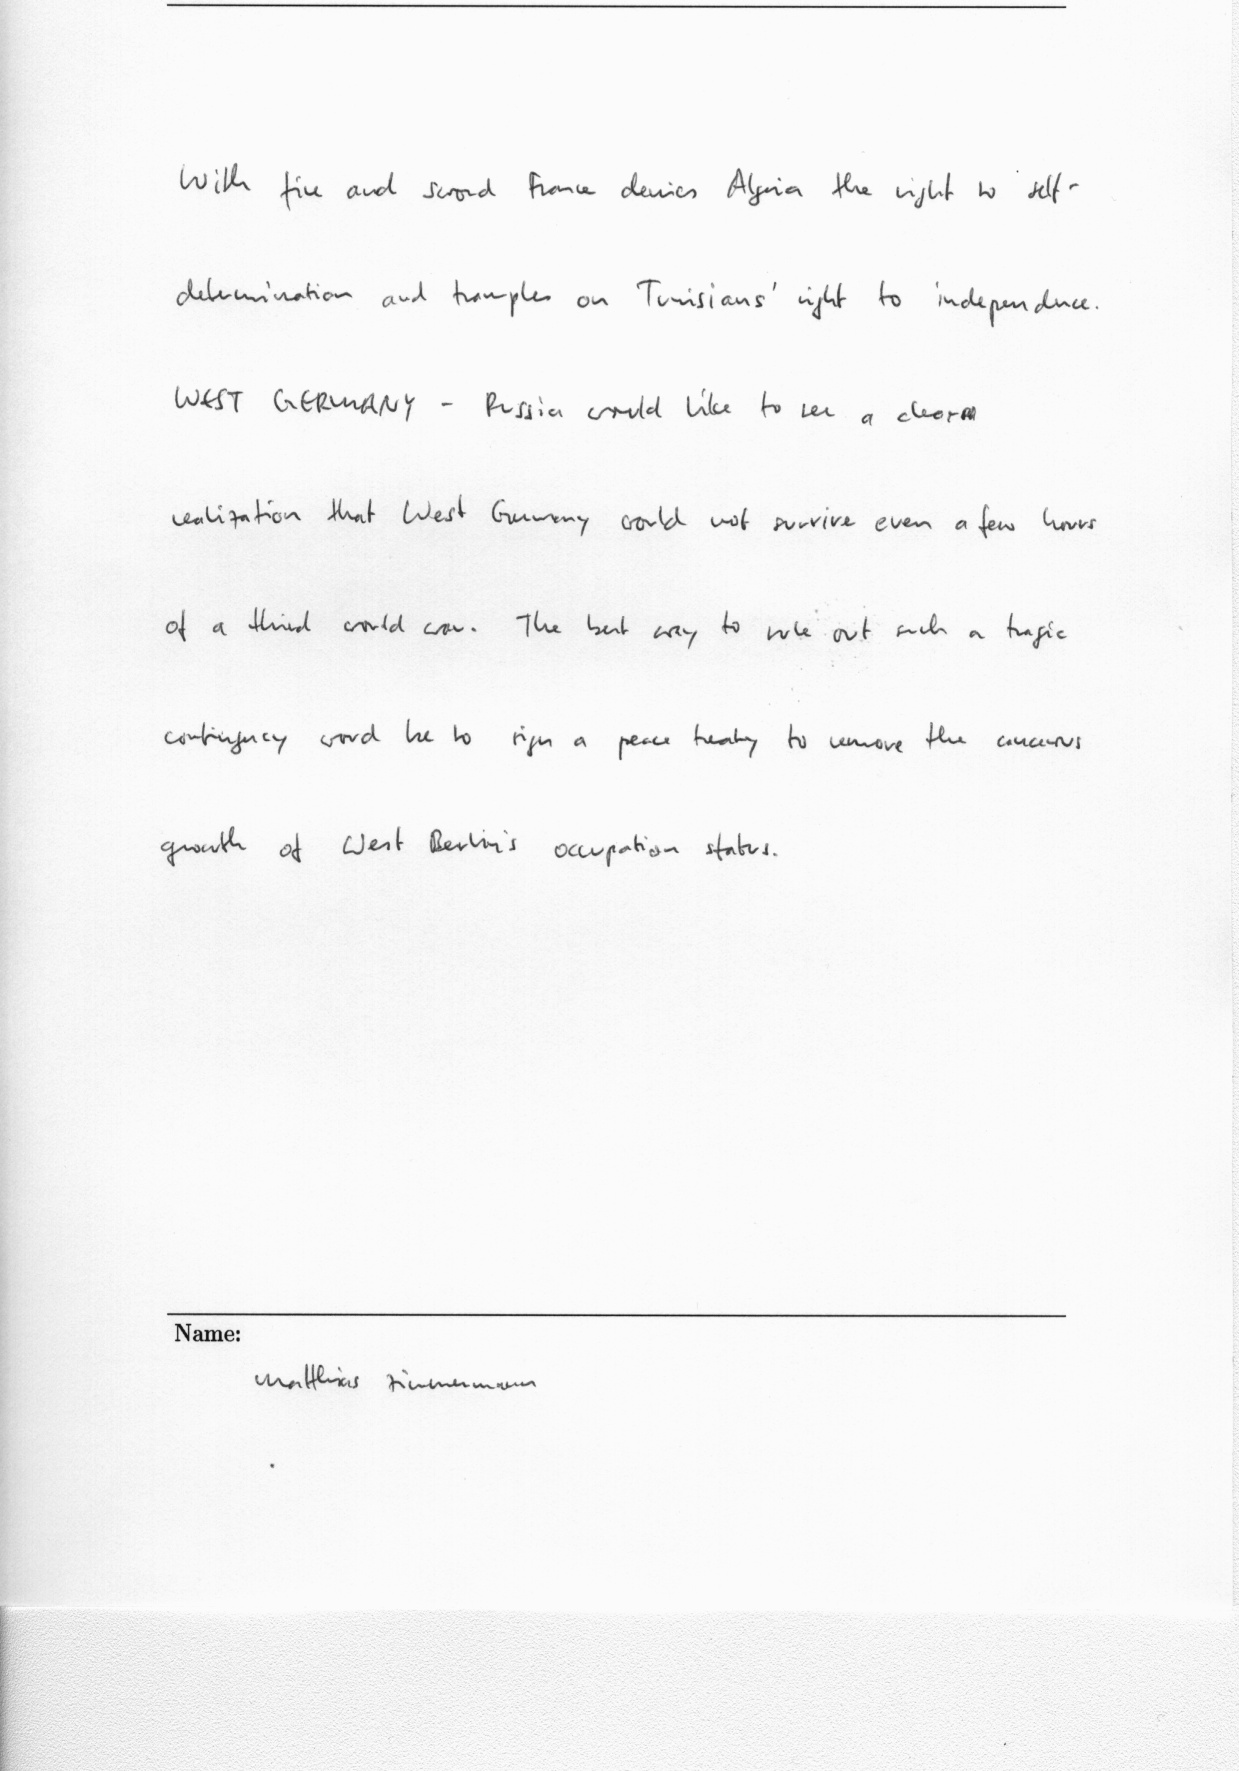 With fire and sword France denies Algeria the right to self-
determination and tramples on Tunisians' right to independence.
WEST GERMANY - Russia would like to see a clear
realization that West Germany could not survive even a few hours
of a third world war. The best way to rule out such a tragic
contingency would be to sign a peace treaty to remove the cancerous
growth of West Berlin's occupation status.
Name:
Matthias Zimmermann